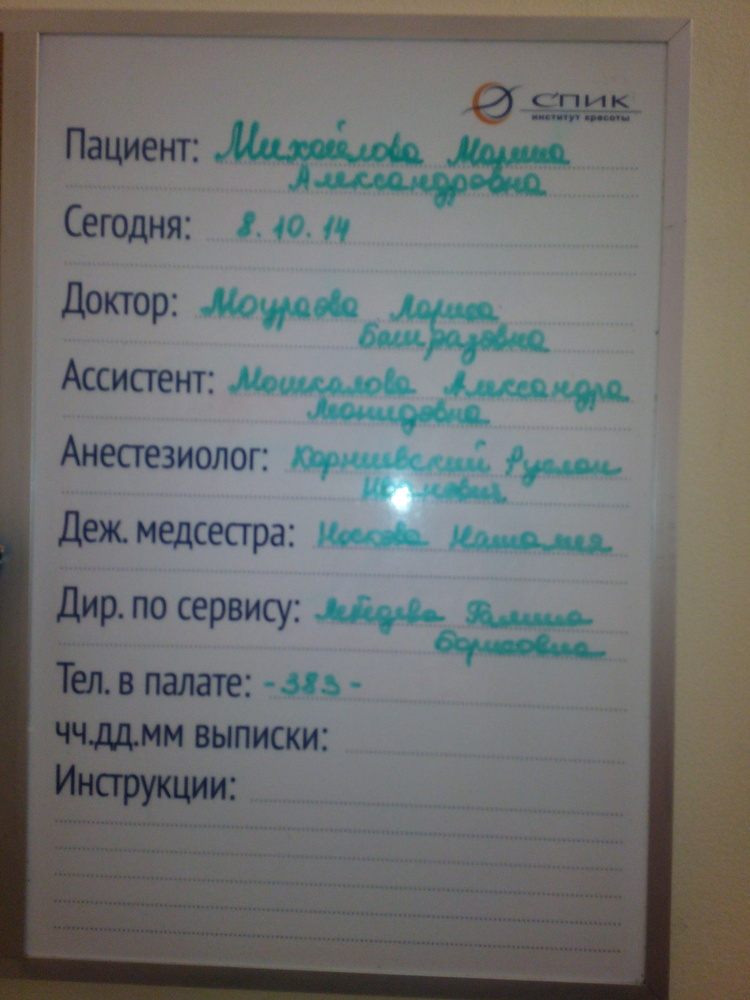 СПИК
институт красоты
Пациент: Михайлова Марина
Александровна
Сегодня: 8.10.14
Доктор: Моураова Лариса
Батразовна
Ассистент: Мошкалова Александра
Леонидовна
Анестезиолог: Корниевский Руслан
Иванович
Деж. медсестра: Носкова Наталия
Дир. по сервису: Лебедева Галина
Борисовна
Тел. в палате: -383-
чч.дд.мм выписки:
Инструкции: